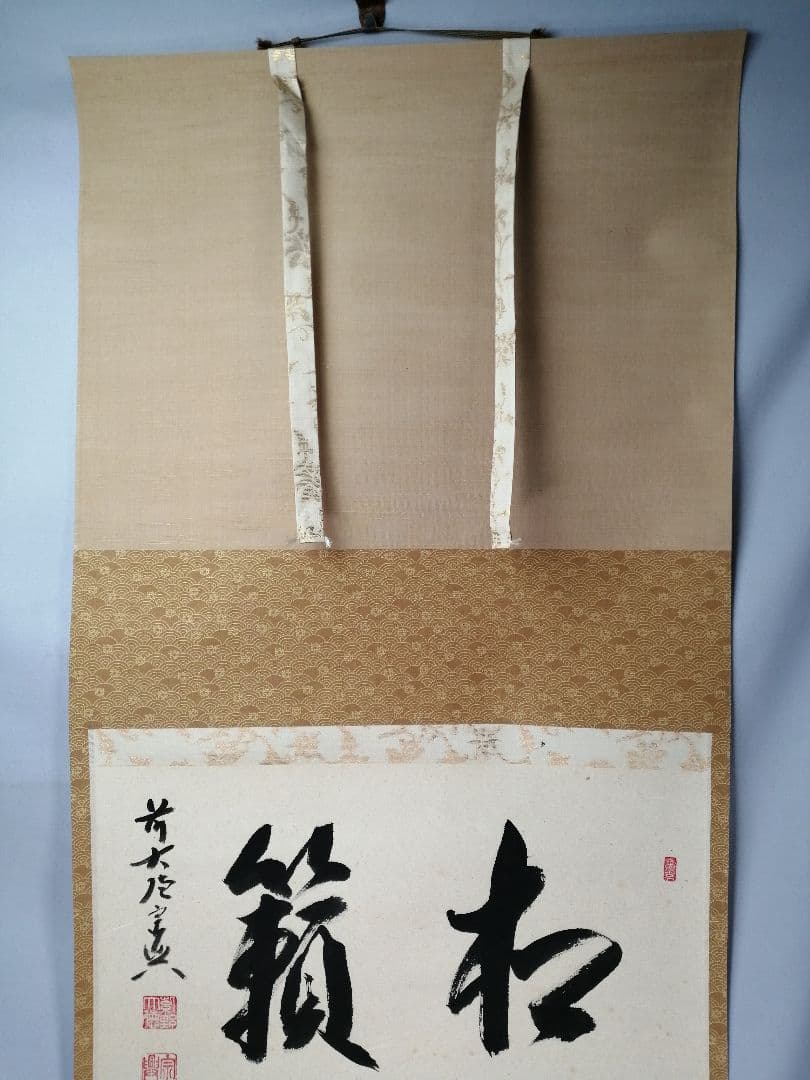 松籟
前大徳宗興